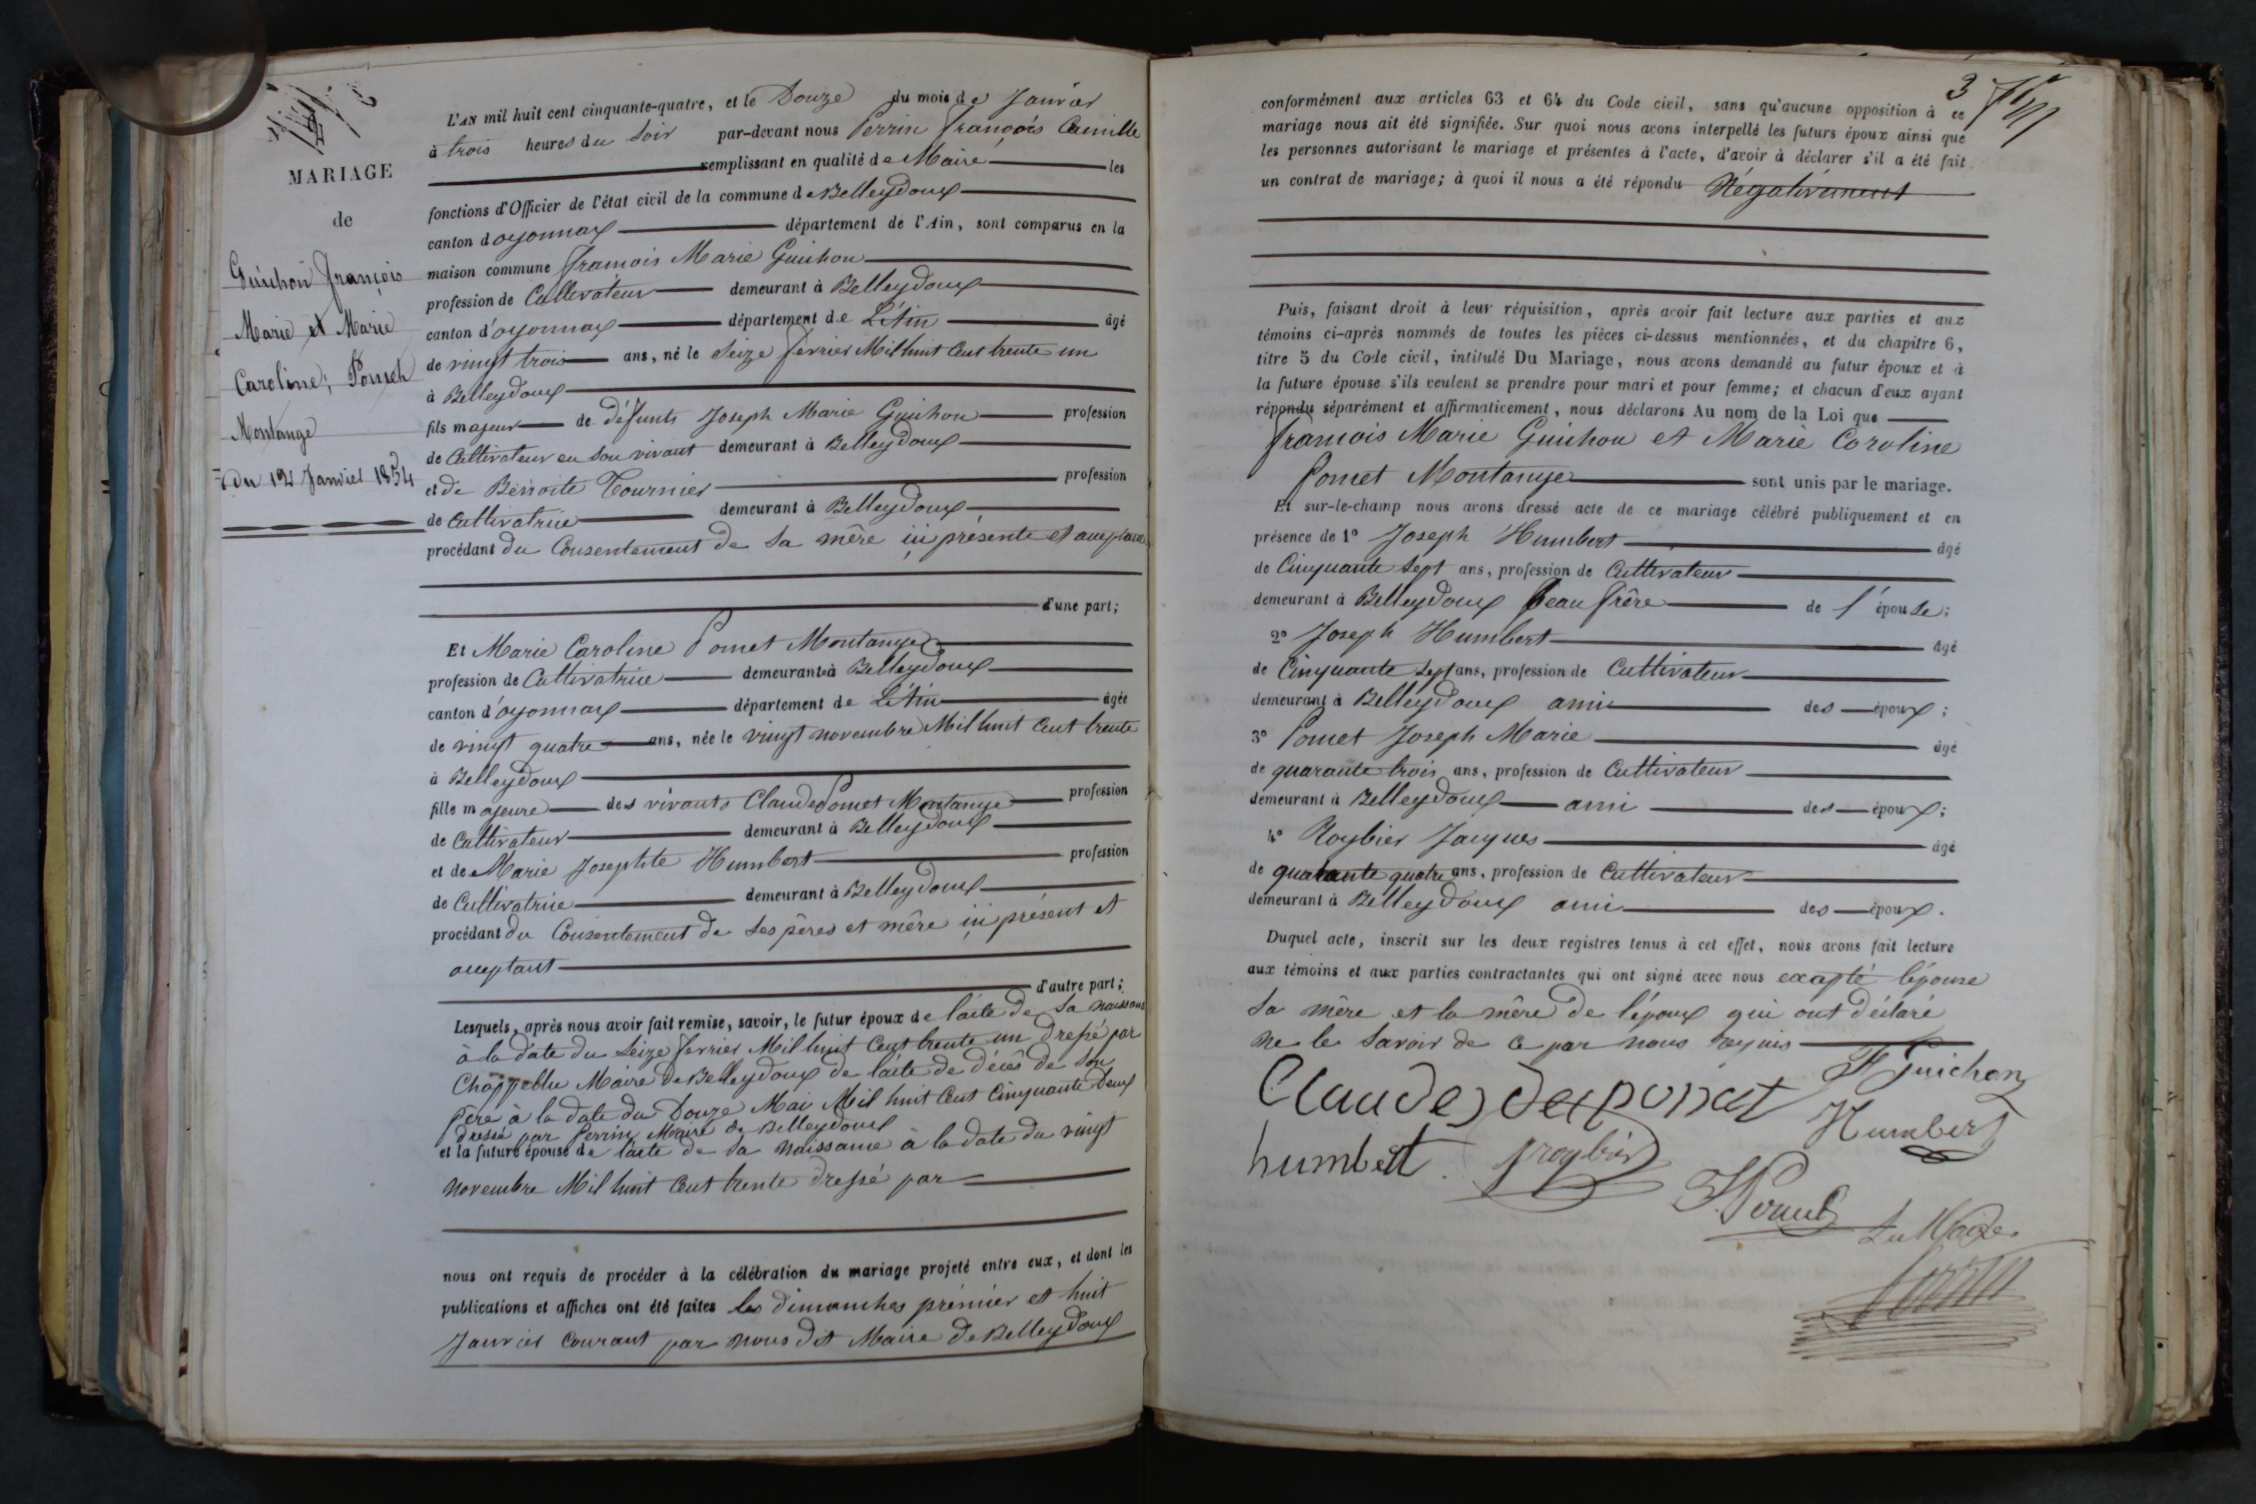 MARIAGE
de
Guichon François
Marie et Marie
Caroline; Pomet
Montange
du 12 Janvier 1854
L'AN mil huit cent cinquante-quatre, et le Douze du mois de Janvier
à trois heures du Soir par-devant nous Perrin François Camille
remplissant en qualité de Maire les
fonctions d'Officier de l'état civil de la commune de Belleydoux
canton d'oyonnax département de l'Ain, sont comparus en la
maison commune François Marie Guichon
profession de Cultivateur demeurant à Belleydoux
canton d'oyonnax département de L'Ain âgé
de vingt trois ans, né le Seize fevrier Mil huit Cent trente un
à Belleydoux
fils majeur de défunts Joseph Marie Guichon profession
de Cultivateur en son vivant demeurant à Belleydoux
et de Benoite Tournier profession
de Cultivatrice demeurant à Belleydoux
procédant du Consentement de sa mère ici présente et acceptante
d'une part;
Et Marie Caroline Pomet Montange
profession de Cultivatrice demeurant à Belleydoux
canton d'oyonnax département de L'Ain âgée
de vingt quatre ans, née le vingt novembre Mil huit Cent trente
à Belleydoux
fille majeure des vivants Claude Pomet Montange profession
de Cultivateur demeurant à Belleydoux
et de Marie Josephte Humbert profession
de Cultivatrice demeurant à Belleydoux
procédant du Consentement de ses pères et mère ici présent et
acceptant
d'autre part;
Lesquels, après nous avoir fait remise, savoir, le futur époux de l'acte de sa naissance
à la date du Seize fevrier Mil huit Cent trente un dressé par
Chappellu Maire de Belleydoux de l'acte de décès de son
Père à la date du Douze Mai Mil huit Cent Cinquante Deux
dressé par Perrin Maire de Belleydoux
et la future épouse de l'acte de sa naissance à la date du vingt
novembre Mil huit Cent trente dressé par
nous ont requis de procéder à la célébration du mariage projeté entre eux, et dont les
publications et affiches ont été faites les dimanches premier et huit
Janvier Courant par nous dit Maire de Belleydoux
3
conformément aux articles 63 et 64 du Code civil, sans qu'aucune opposition à ce
mariage nous ait été signifiée. Sur quoi nous avons interpellé les futurs époux ainsi que
les personnes autorisant le mariage et présentes à l'acte, d'avoir à déclarer s'il a été fait
un contrat de mariage; à quoi il nous a été répondu Négativement
Puis, faisant droit à leur réquisition, après avoir fait lecture aux parties et aux
témoins ci-après nommés de toutes les pièces ci-dessus mentionnées, et du chapitre 6,
titre 5 du Code civil, intitulé Du Mariage, nous avons demandé au futur époux et à
la future épouse s'ils veulent se prendre pour mari et pour femme; et chacun d'eux ayant
répondu séparément et affirmativement, nous déclarons Au nom de la Loi que
François Marie Guichon et Marie Caroline
Pomet Montange sont unis par le mariage.
Et sur-le-champ nous avons dressé acte de ce mariage célébré publiquement et en
présence de 1° Joseph Humbert âgé
de Cinquante sept ans, profession de Cultivateur
demeurant à Belleydoux beau frère de l'épouse;
2° Joseph Humbert âgé
de Cinquante sept ans, profession de Cultivateur
demeurant à Belleydoux ami des époux;
3° Pomet Joseph Marie âgé
de quarante trois ans, profession de Cultivateur
demeurant à Belleydoux ami des époux;
4° Roybier Jacques âgé
de quarante quatre ans, profession de Cultivateur
demeurant à Belleydoux ami des époux.
Duquel acte, inscrit sur les deux registres tenus à cet effet, nous avons fait lecture
aux témoins et aux parties contractantes qui ont signé avec nous excepté l'épouse
sa mère et la mère de l'époux qui ont déclaré
ne le savoir de ce par nous requis
F Guichon
Claude
Humbert
humbert
Le Maire
Perrin